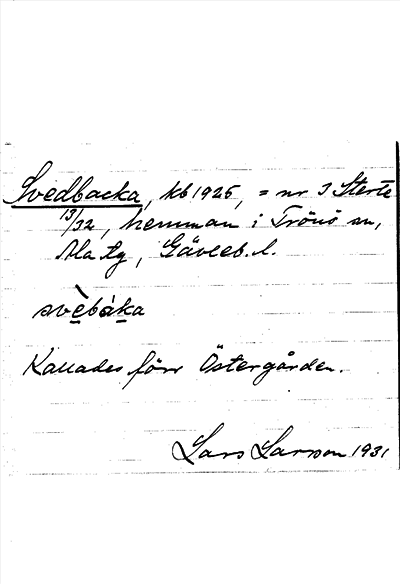 Svedbacka, kb 1925, = nr 3 Sterte
13/32, hemman i Trönö sn,
Ala tg, Gävleb. l.
svèbáka
Kallades förr Östergården.
Lars Larsson 1931